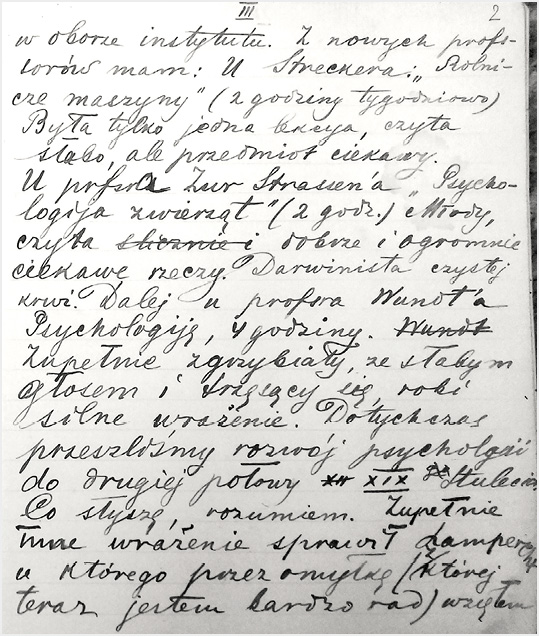 III 2
w oborze instytutu. Z nowych profs-
sorów mam: U Streckera: „Rolni-
cze maszyny" (2 godziny tygodniowo)
Była tylko jedna lekcya, czyta
słabo, ale przedmiot ciekawy.
U prfsra Zur Strassen'a „Psycho-
logija zwierząt" (2 godz.) Młody,
czyta ślicznie i dobrze i ogromnie
ciekawe rzeczy. Darwinista czystej
krwi. Dalej u profsra Wundt'a
Psychologiję, 4 godziny. Wundt
Zupełnie zgrzybiały, ze słabym
głosem i trzęsący się, robi
silne wrażenie. Dotychczas
przeszliśmy rozwój psychologii
do drugiej połowy XIX Stulecia.
Co słyszę, rozumiem. Zupełnie
inne wrażenie sprawił
u którego przez omyłkę (z której
teraz jestem bardzo rad) wziąłem